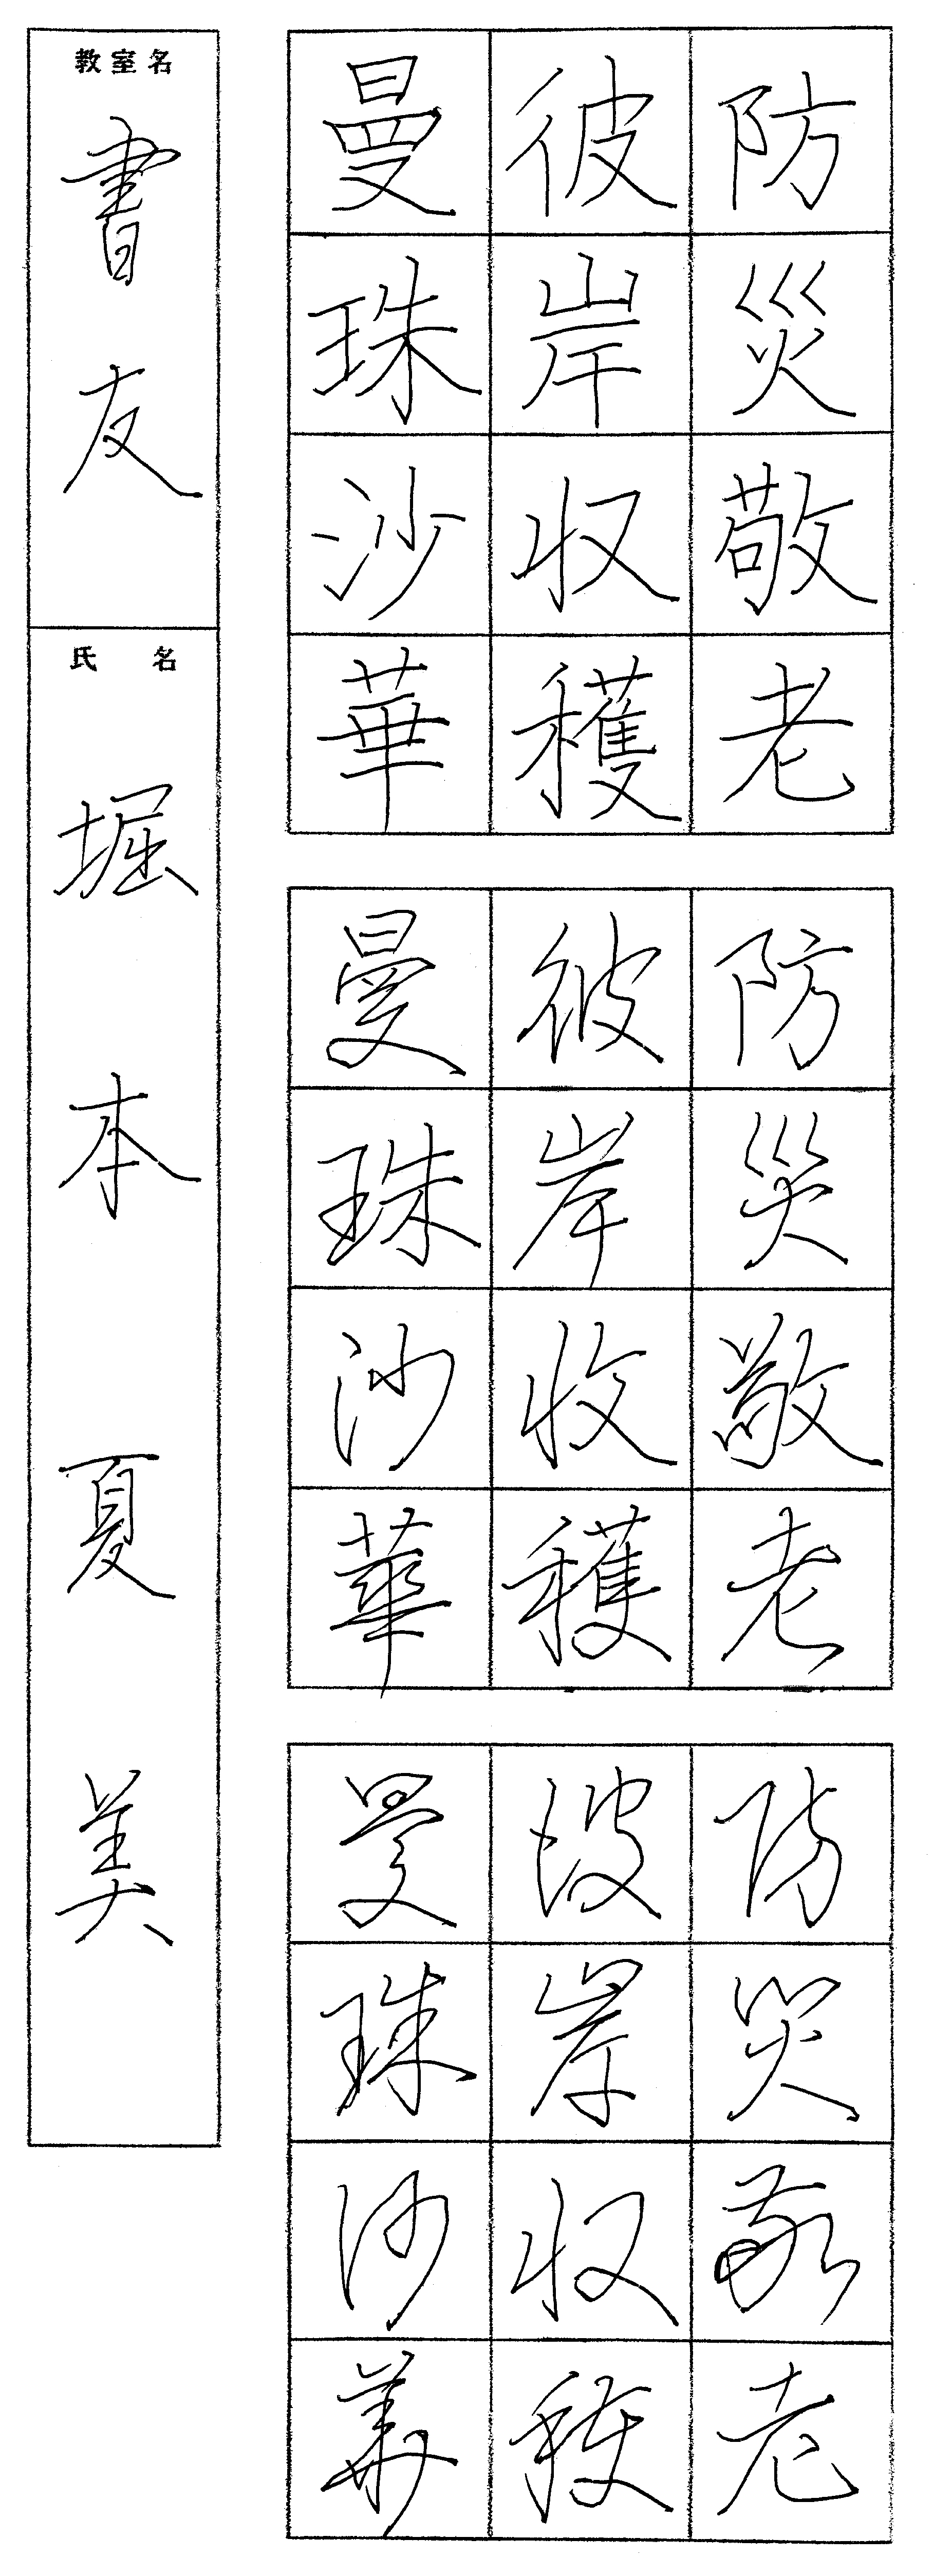 防災敬老
彼岸収穫
曼珠沙華
防災敬老
彼岸收穫
曼珠沙華
防災敬老
彼岸収穫
曼珠沙華
教室名
書友
氏名
堀本夏美